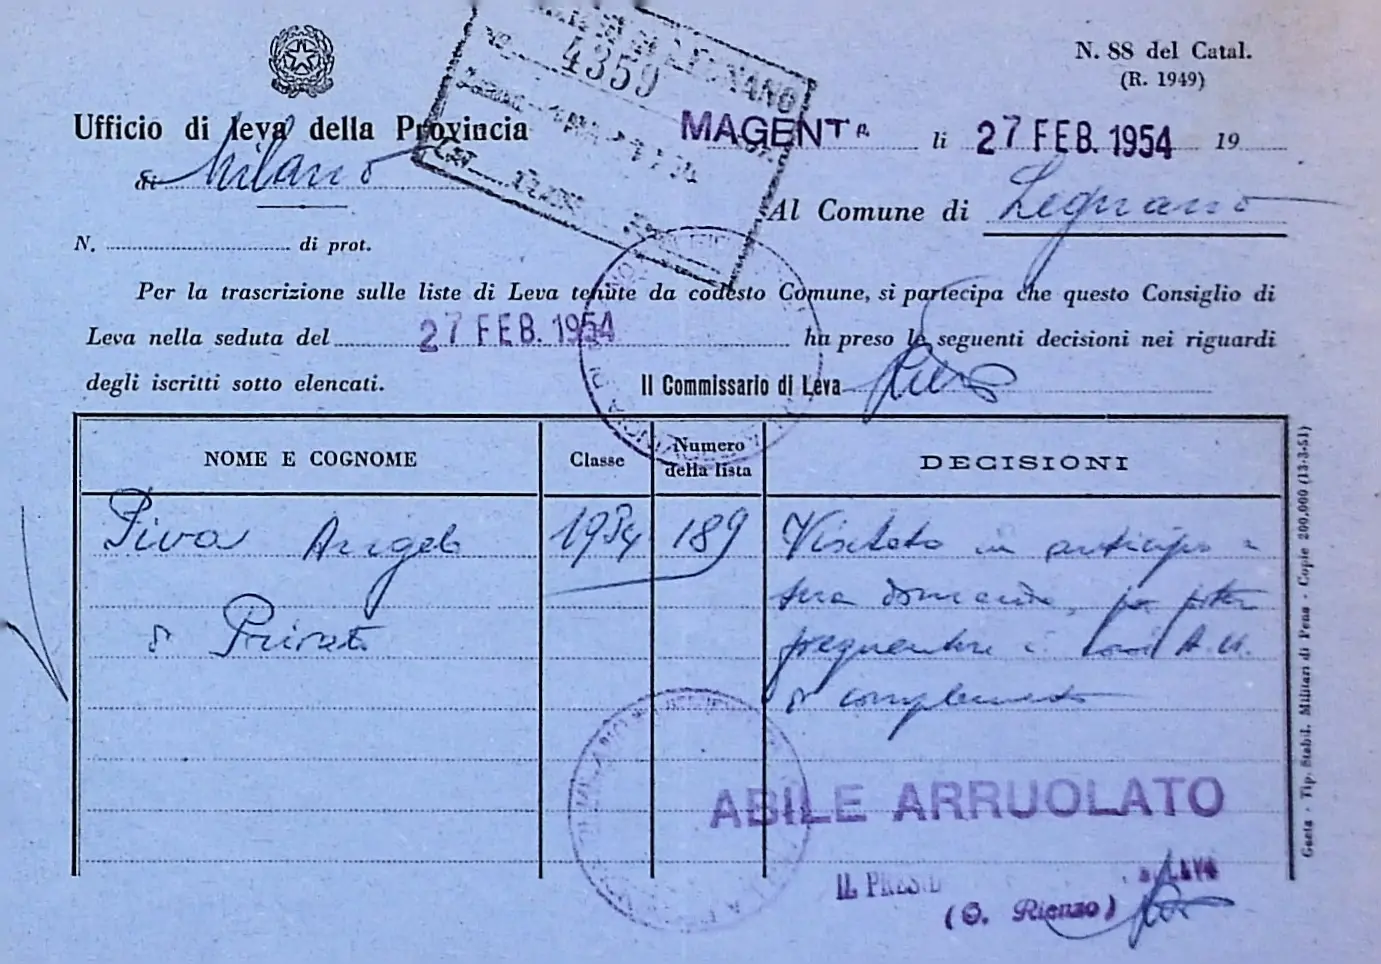 N. 88 del Catal.
(R. 1949)
LEGNANO
4359
Ufficio di leva della Provincia
di Milano
MAGENTA li 27 FEB. 1954 19
Al Comune di Legnano
N. di prot.
Per la trascrizione sulle liste di Leva tenute da codesto Comune, si partecipa che questo Consiglio di
Leva nella seduta del 27 FEB. 1954 ha preso le seguenti decisioni nei riguardi
degli iscritti sotto elencati. Il Commissario di Leva
NOME E COGNOME Classe Numero della lista DECISIONI
Piva Angelo 1934 189 Visitato in anticipo a
sua domanda, per poter
di Privato frequentare i corsi A.U.
di complemento
ABILE ARRUOLATO
IL PRESID LEVA
(G. Rienzo)
Gaeta - Tip. Stabil. Militari di Pena - Copie 200.000 (13-3-51)